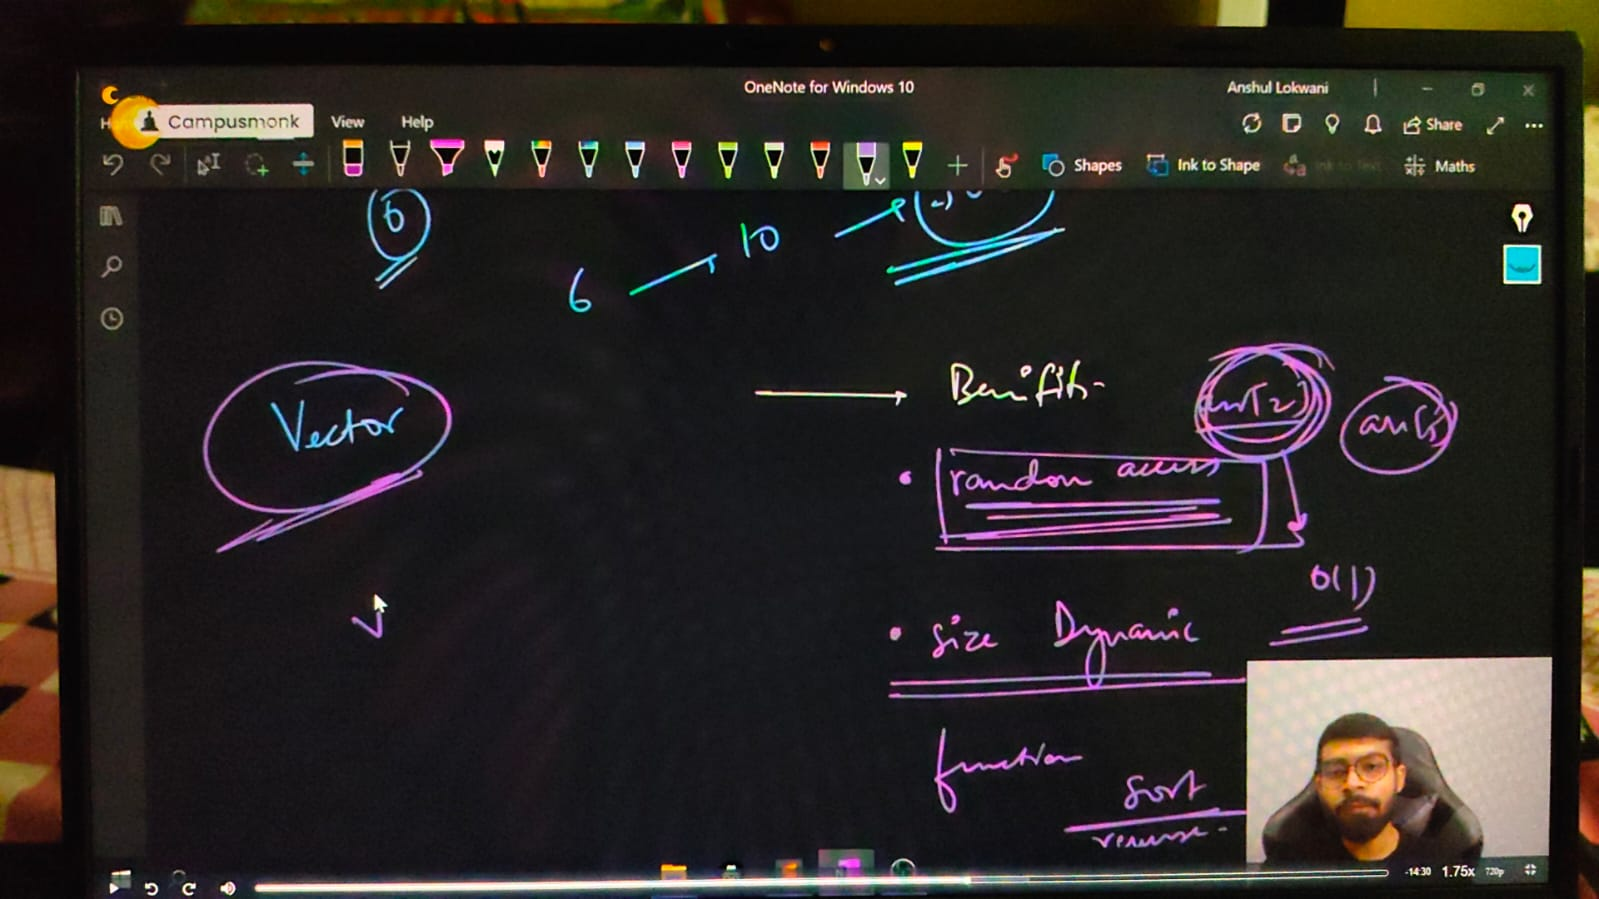 OneNote for Windows 10
Anshul Lokwani
Campusmonk
View
Help
Share
Shapes
Ink to Shape
Ink to Text
Maths
6
6
10
Vector
Benifits
arr[2]
arr[5]
random access
O(1)
size Dynamic
function
sort
reverse
-14:30
1.75x
720p